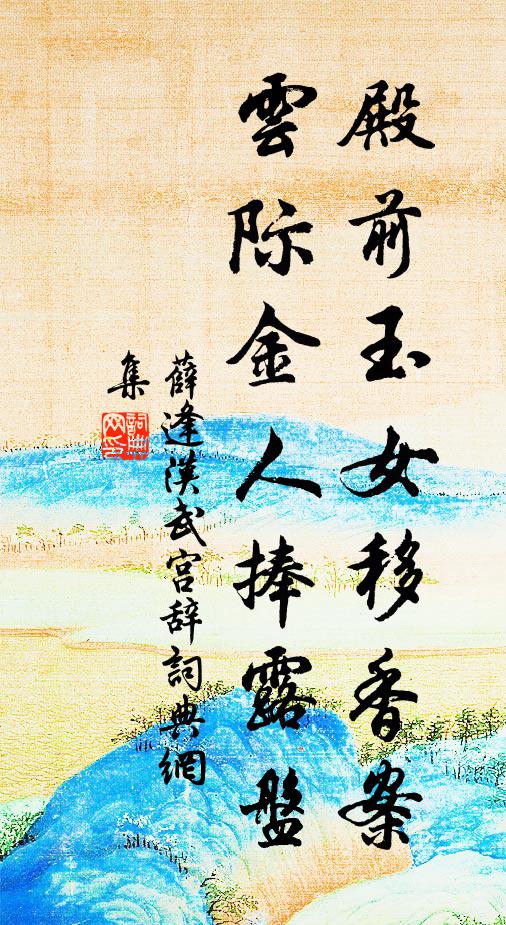 殿前玉女移香案
雲际金人捧露盤
薛逢漢武宮辞詞典網
集